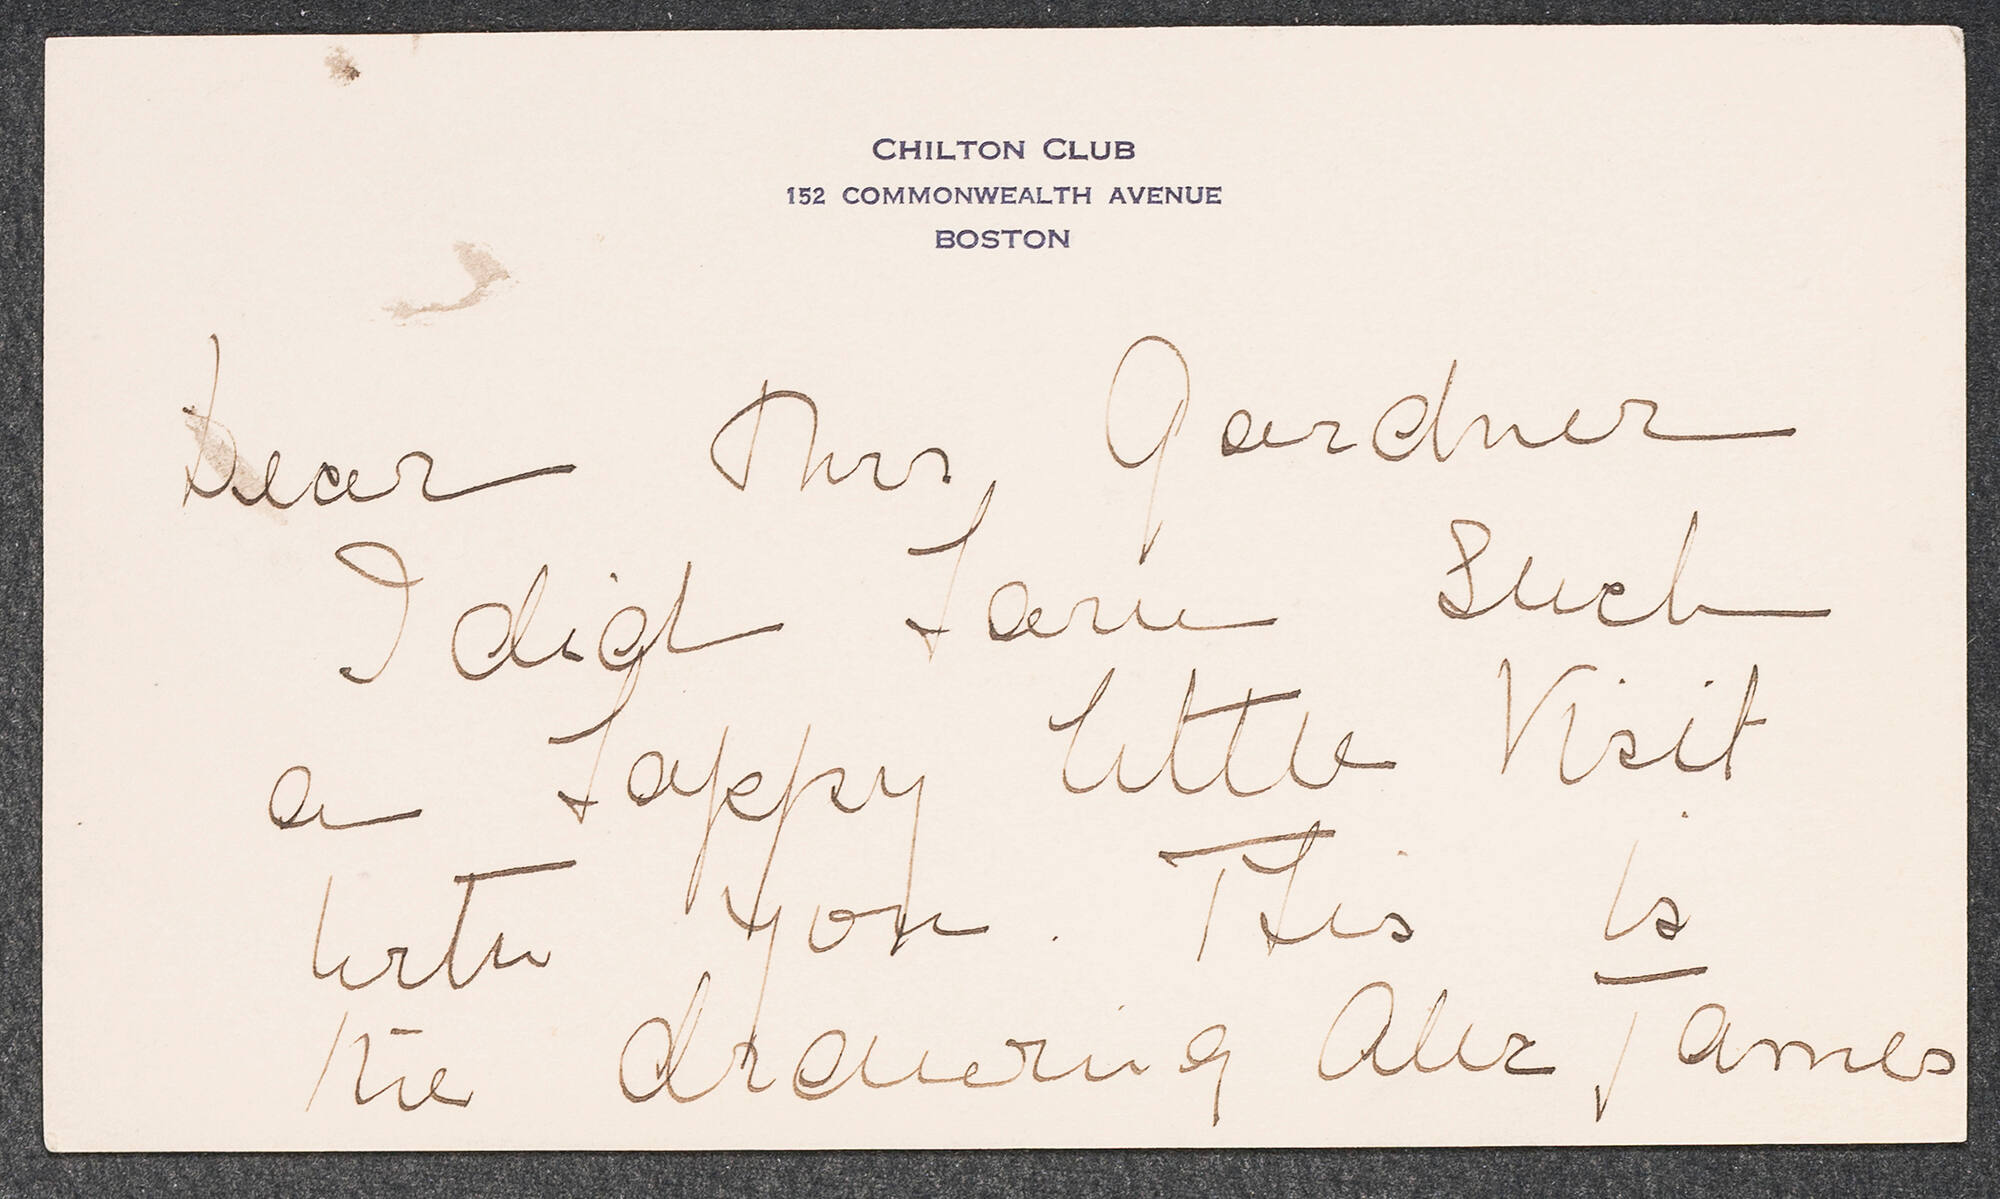 CHILTON CLUB
152 COMMONWEALTH AVENUE
BOSTON
Dear Mrs Gardner
I did have such
a happy little visit
with you. This is
the drawing Alex James